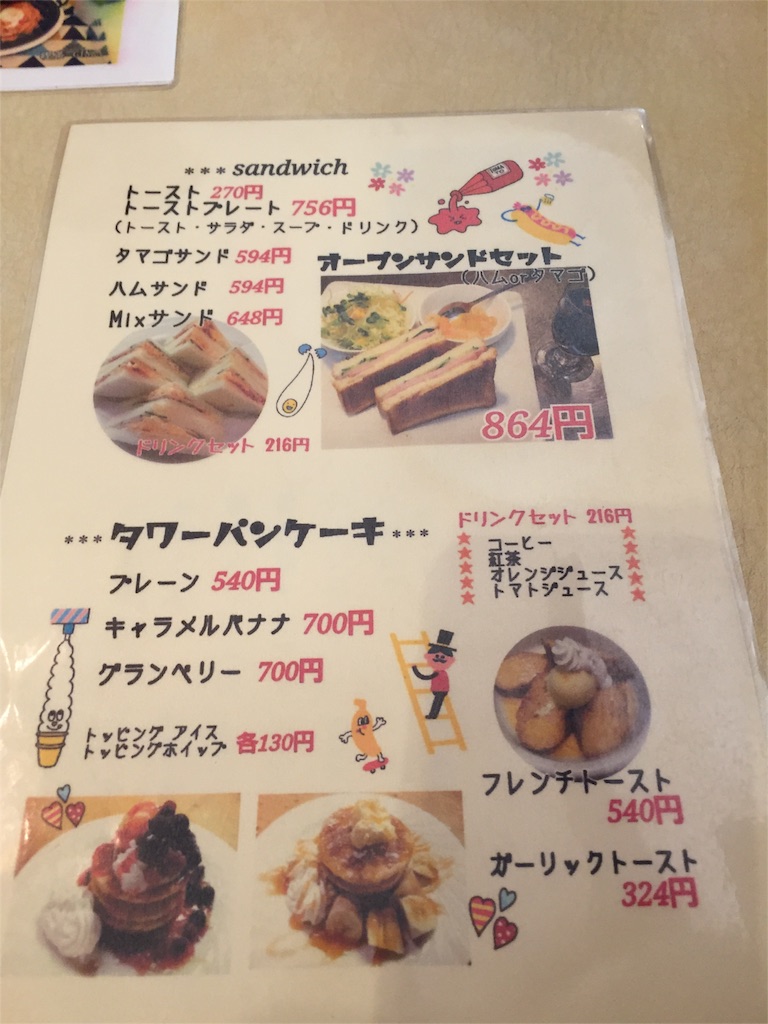 *** sandwich
トースト 270円
トーストプレート 756円
(トースト・サラダ・スープ・ドリンク)
タマゴサンド 594円
ハムサンド 594円
Mixサンド 648円
ドリンクセット 216円
オープンサンドセット
(ハムorタマゴ)
864円
***タワーパンケーキ***
プレーン 540円
キャラメルバナナ 700円
グランベリー 700円
トッピング アイス
トッピングホイップ 各130円
ドリンクセット 216円
コーヒー
紅茶
オレンジジュース
トマトジュース
フレンチトースト
540円
ガーリックトースト
324円